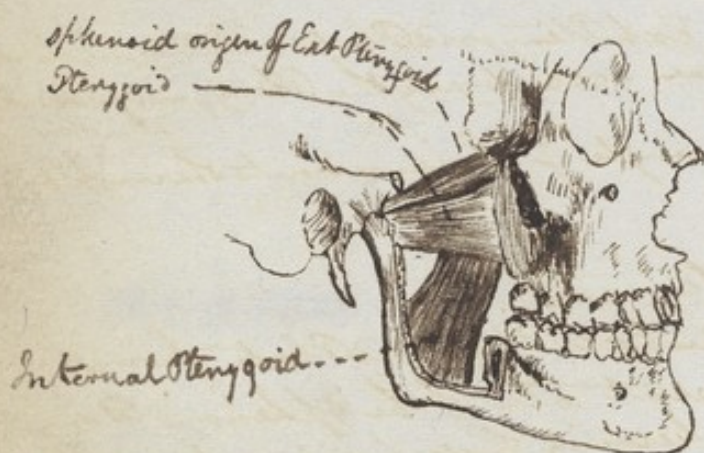 sphenoid origin of Ext Pterygoid
Pterygoid
Internal Pterygoid